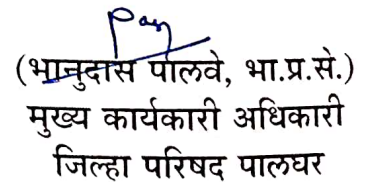 (भानुदास पालवे, भा.प्र.से.)
मुख्य कार्यकारी अधिकारी
जिल्हा परिषद पालघर